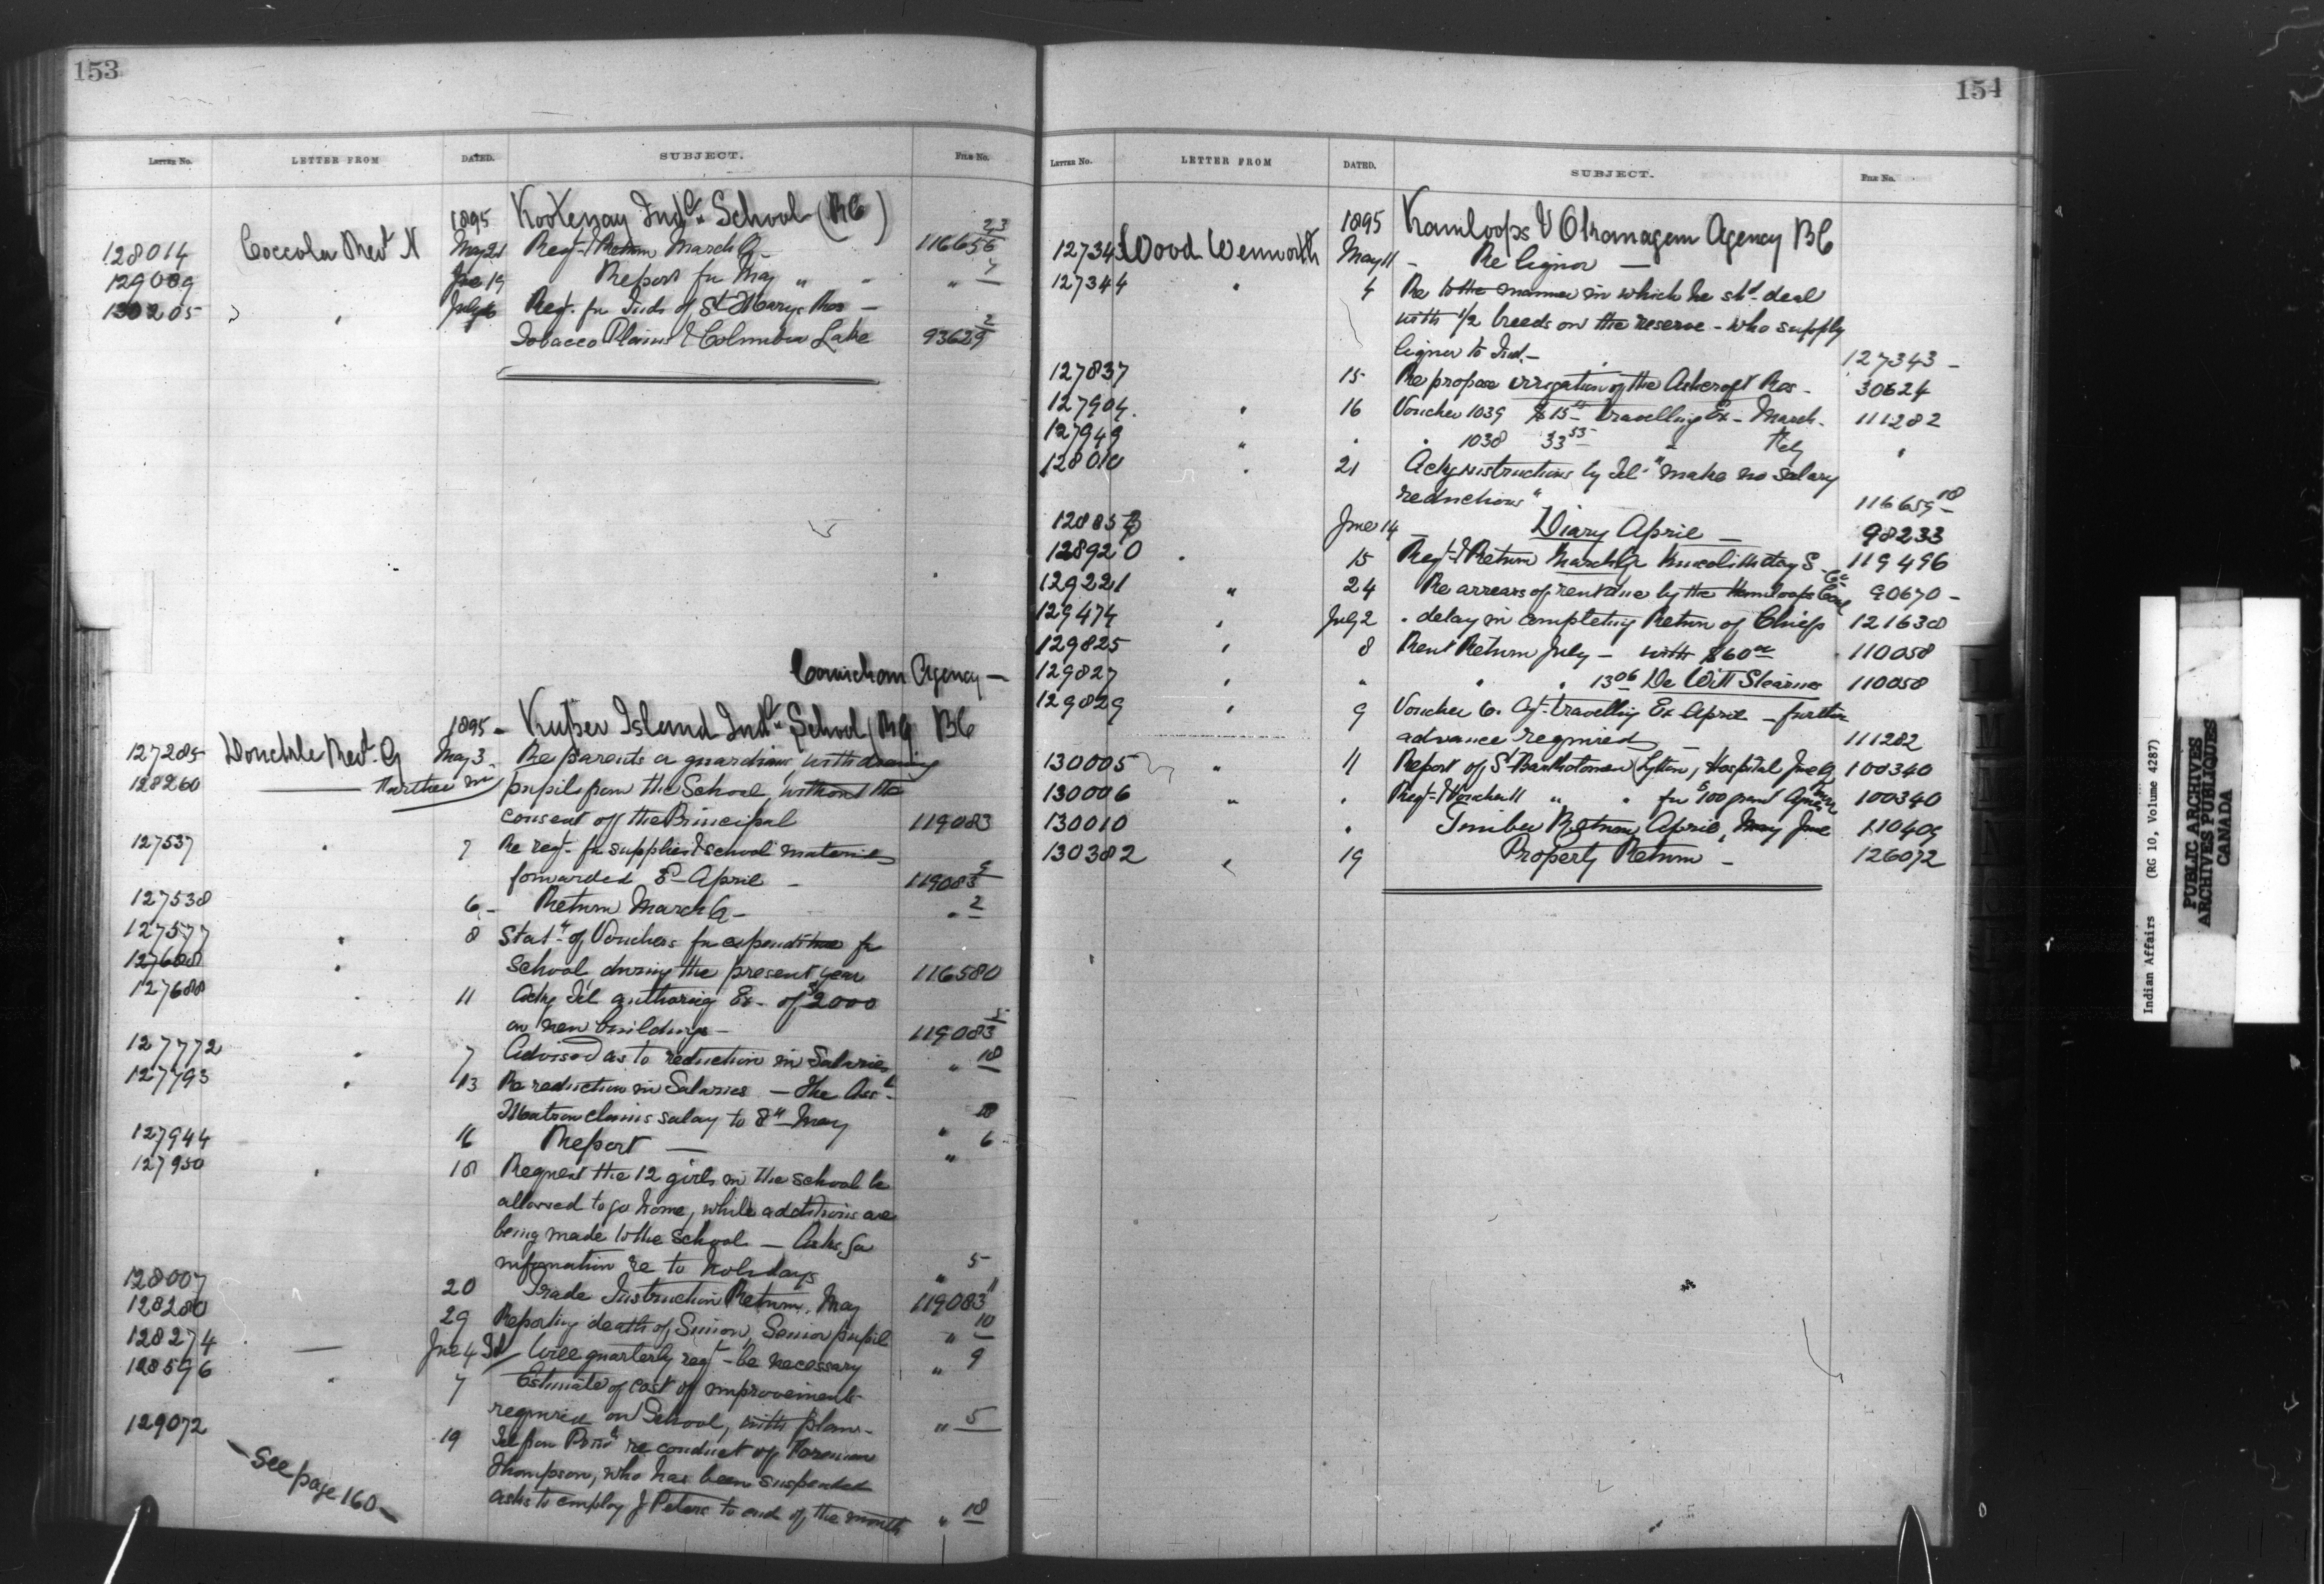 153
LETTER No. LETTER FROM DATED. SUBJECT. FILE No.
1895 Kootenay Indl. School (BC)
128014 Coccola Revd N May 21 Reqt & Return March Q - 116656 23
129089 June 19 Report for May " - " 7
130205 " " July 6 Reqt. for Inds of St Marys Res -
Tobacco Plains & Columbia Lake 93629 2
Cowichan Agency —
1895 - Kuper Island Indl. School BC
127285 Donckele Revd. G May 3. Re parents or guardians withdrawing
128260 — Further re pupils from the School, without the
consent of the Principal 119083
127537 " 7 Re reqt. for supplies & school material
forwarded E - April - 119083 9
127538 6 - Return March Q - " 2
127577 " 8 Statt. of Vouchers for expenditure for
127688 " School during the present year 116580
127688 " 11 Ackg Tel. authorizg Ex- of $2000
on new buildings - 119083 5
127772 " 7 Advised as to reduction in Salaries " 18
127793 " 13 Re reduction in Salaries - The Asst.
Matron claims salary to 8th May " 18
127944 16 Report — " 6
127950 " 18 Request the 12 girls in the school be
allowed to go home, while additions are
being made to the school - Asks for
information re to holidays " 5
128007 20 Trade Instruction Return. May 119083 11
128280 29 Reporting death of Simon, Senior pupil " 10
128274 — June 4 Will quarterly reqt - be necessary " 9
128596 " 7 Estimate of cost of improvements
required on School, with plans - " 5
129072 19 Tel from re conduct of Foreman
Thompson, who has been suspended
asks to employ J Peters to end of the month " 18
- See page 160 -
154
LETTER No. LETTER FROM DATED. SUBJECT. FILE No.
1895 Kamloops & Okanagan Agency BC
127343 Wood Wenworth May 11 - Re liquor —
127344 " 4 Re to the manner in which he shd. deal
with 1/2 breeds on the reserve - who supply
liquor to Ind. - 127343 -
127837 15 Re propose irrigation of the Ashcroft Res - 30624
127904. " 16 Voucher 1039 $15 travelling Ex - March - 111282
127949 " " " 1038 33 53 " Feby "
128010 " 21 Ackg instructions by Tel. "make no salary
reductions" 116659 18
June 14 — Diary April — 98233
128920 " 15 Reqt. & Return March Q Day S. 119496
129221 " 24 Re arrears of rent due by the Kamloops Coal Co 90670 -
129474 " July 2 " delay in completing Return of Chiefs 121638
129825 " 8 Rent Return July - with $60 110058
129827 " " " " 13 06 De Witt Stearnes 110058
129829 " 9 Voucher 6. travelling Ex April - further
advance required — 111282
130005 " 11 Report of St Bartholomew (Lytton) Hospital June Q 100340
130006 " " Reqt. & Voucher 11 " " for $100 grant 100340
130010 " Timber Return April, May June 110409
130382 " 19 Property Return - 126072
Indian Affairs (RG 10, Volume 4287)
PUBLIC ARCHIVES
ARCHIVES PUBLIQUES
CANADA